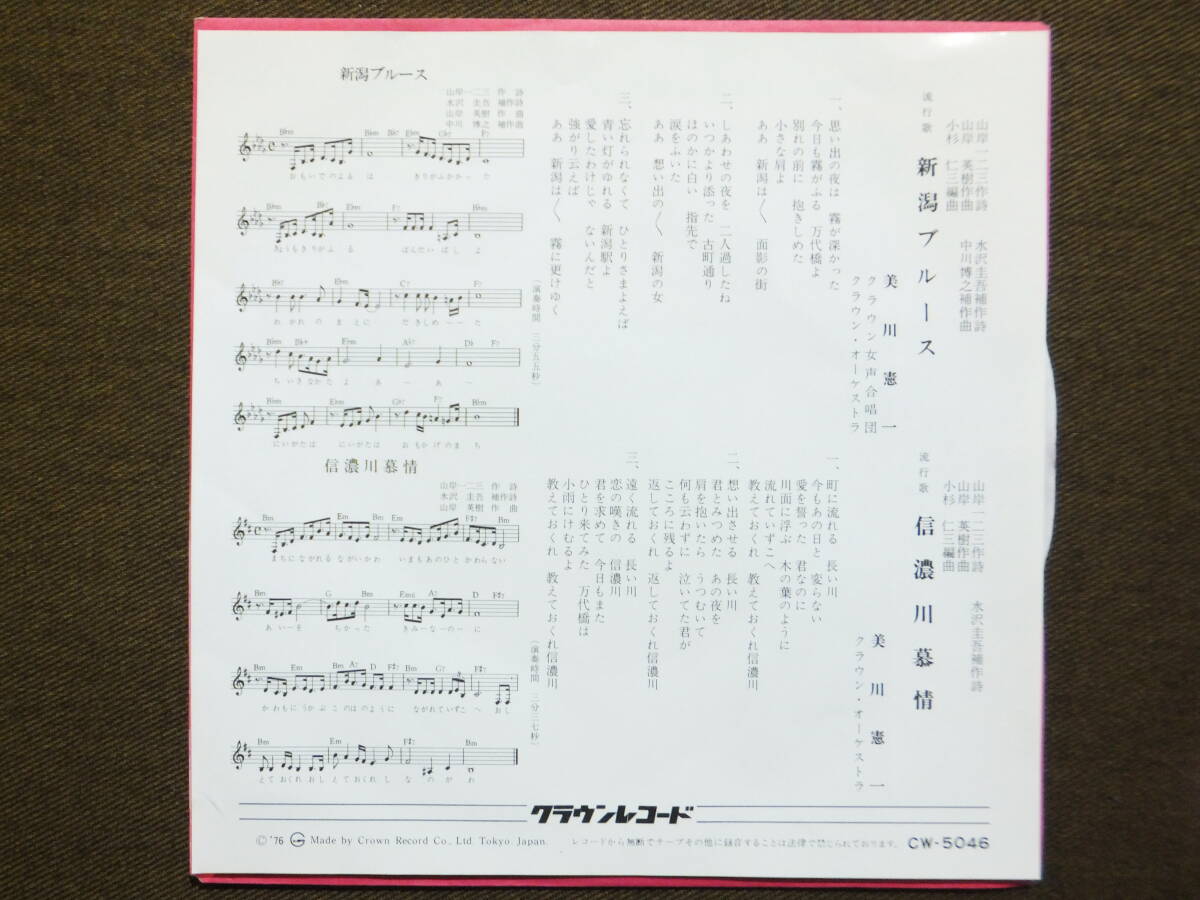 新潟ブルース
山岸一二三 作 詩
水沢 圭吾 補作詩
山岸 英樹 作 曲
中川 博之 補作曲
おもいでのよるは きりがふかかった
きょうもきりがふる ばんだいばしよ
わかれのまえに だきしめーった
ちいさなかたよ あーあー
にいがたは にいがたは おもかげのまち
(演奏時間 三分五五秒)
信濃川慕情
山岸一二三 作 詩
水沢 圭吾 補作詩
山岸 英樹 作 曲
まちにながれるながいかわ いまもあのひと かわらない
あいーを ちかった きみーなーのーに
かわもにうかぶ このはのように ながれていずこへ おし
えておくれ おしえておくれ しなのがわ
(演奏時間 三分三七秒)
流行歌
新潟ブルース
山岸一二三作詩 水沢圭吾補作詩
山岸 英樹作曲 中川博之補作曲
小杉 仁三編曲
美川憲一
クラウン女声合唱団
クラウン・オーケストラ
一、思い出の夜は 霧が深かった
今日も霧がふる 万代橋よ
別れの前に 抱きしめた
小さな肩よ
ああ 新潟は〳〵 面影の街
二、しあわせの夜を 二人過したね
いつかより添った 古町通り
ほのかに白い 指先で
涙をふいた
ああ 想い出の〳〵 新潟の女
三、忘れられなくて ひとりさまよえば
青い灯がゆれる 新潟駅よ
愛したわけじゃ ないんだと
強がり云えば
ああ 新潟は〳〵 霧に更けゆく
流行歌
信濃川慕情
山岸一二三作詩 水沢圭吾補作詩
山岸 英樹作曲
小杉 仁三編曲
美川憲一
クラウン・オーケストラ
一、町に流れる 長い川
今もあの日と 変らない
愛を誓った 君なのに
川面に浮ぶ 木の葉のように
流れていずこへ
教えておくれ 教えておくれ信濃川
二、想い出させる 長い川
君とみつめた あの夜を
肩を抱いたら うつむいて
何も云わずに 泣いてた君が
こころに残るよ
返しておくれ 返しておくれ信濃川
三、遠く流れる 長い川
恋の嘆きの 信濃川
君を求めて 今日もまた
ひとり来てみた 万代橋は
小雨にけむるよ
教えておくれ 教えておくれ信濃川
クラウンレコード
© '76 Made by Crown Record Co., Ltd. Tokyo. Japan. レコードから無断でテープその他に録音することは法律で禁じられております。 CW-5046